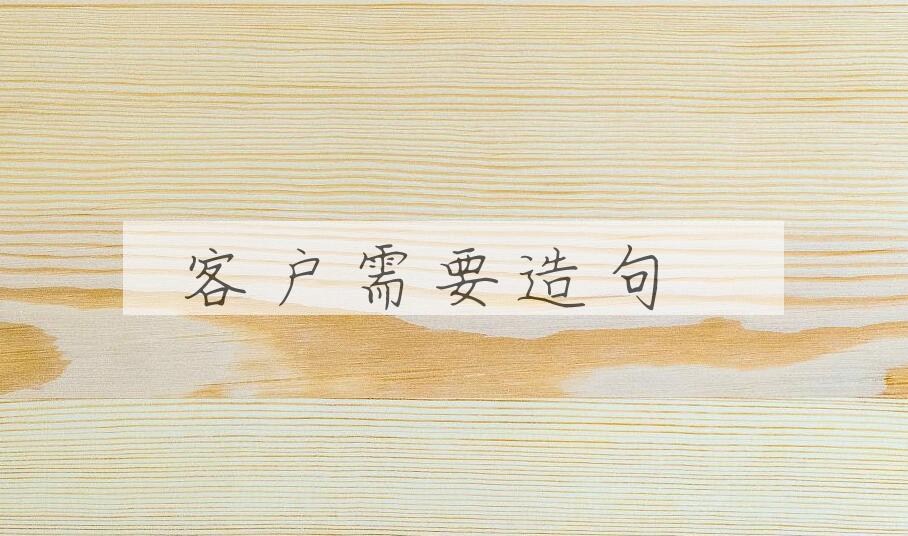 客户需要造句